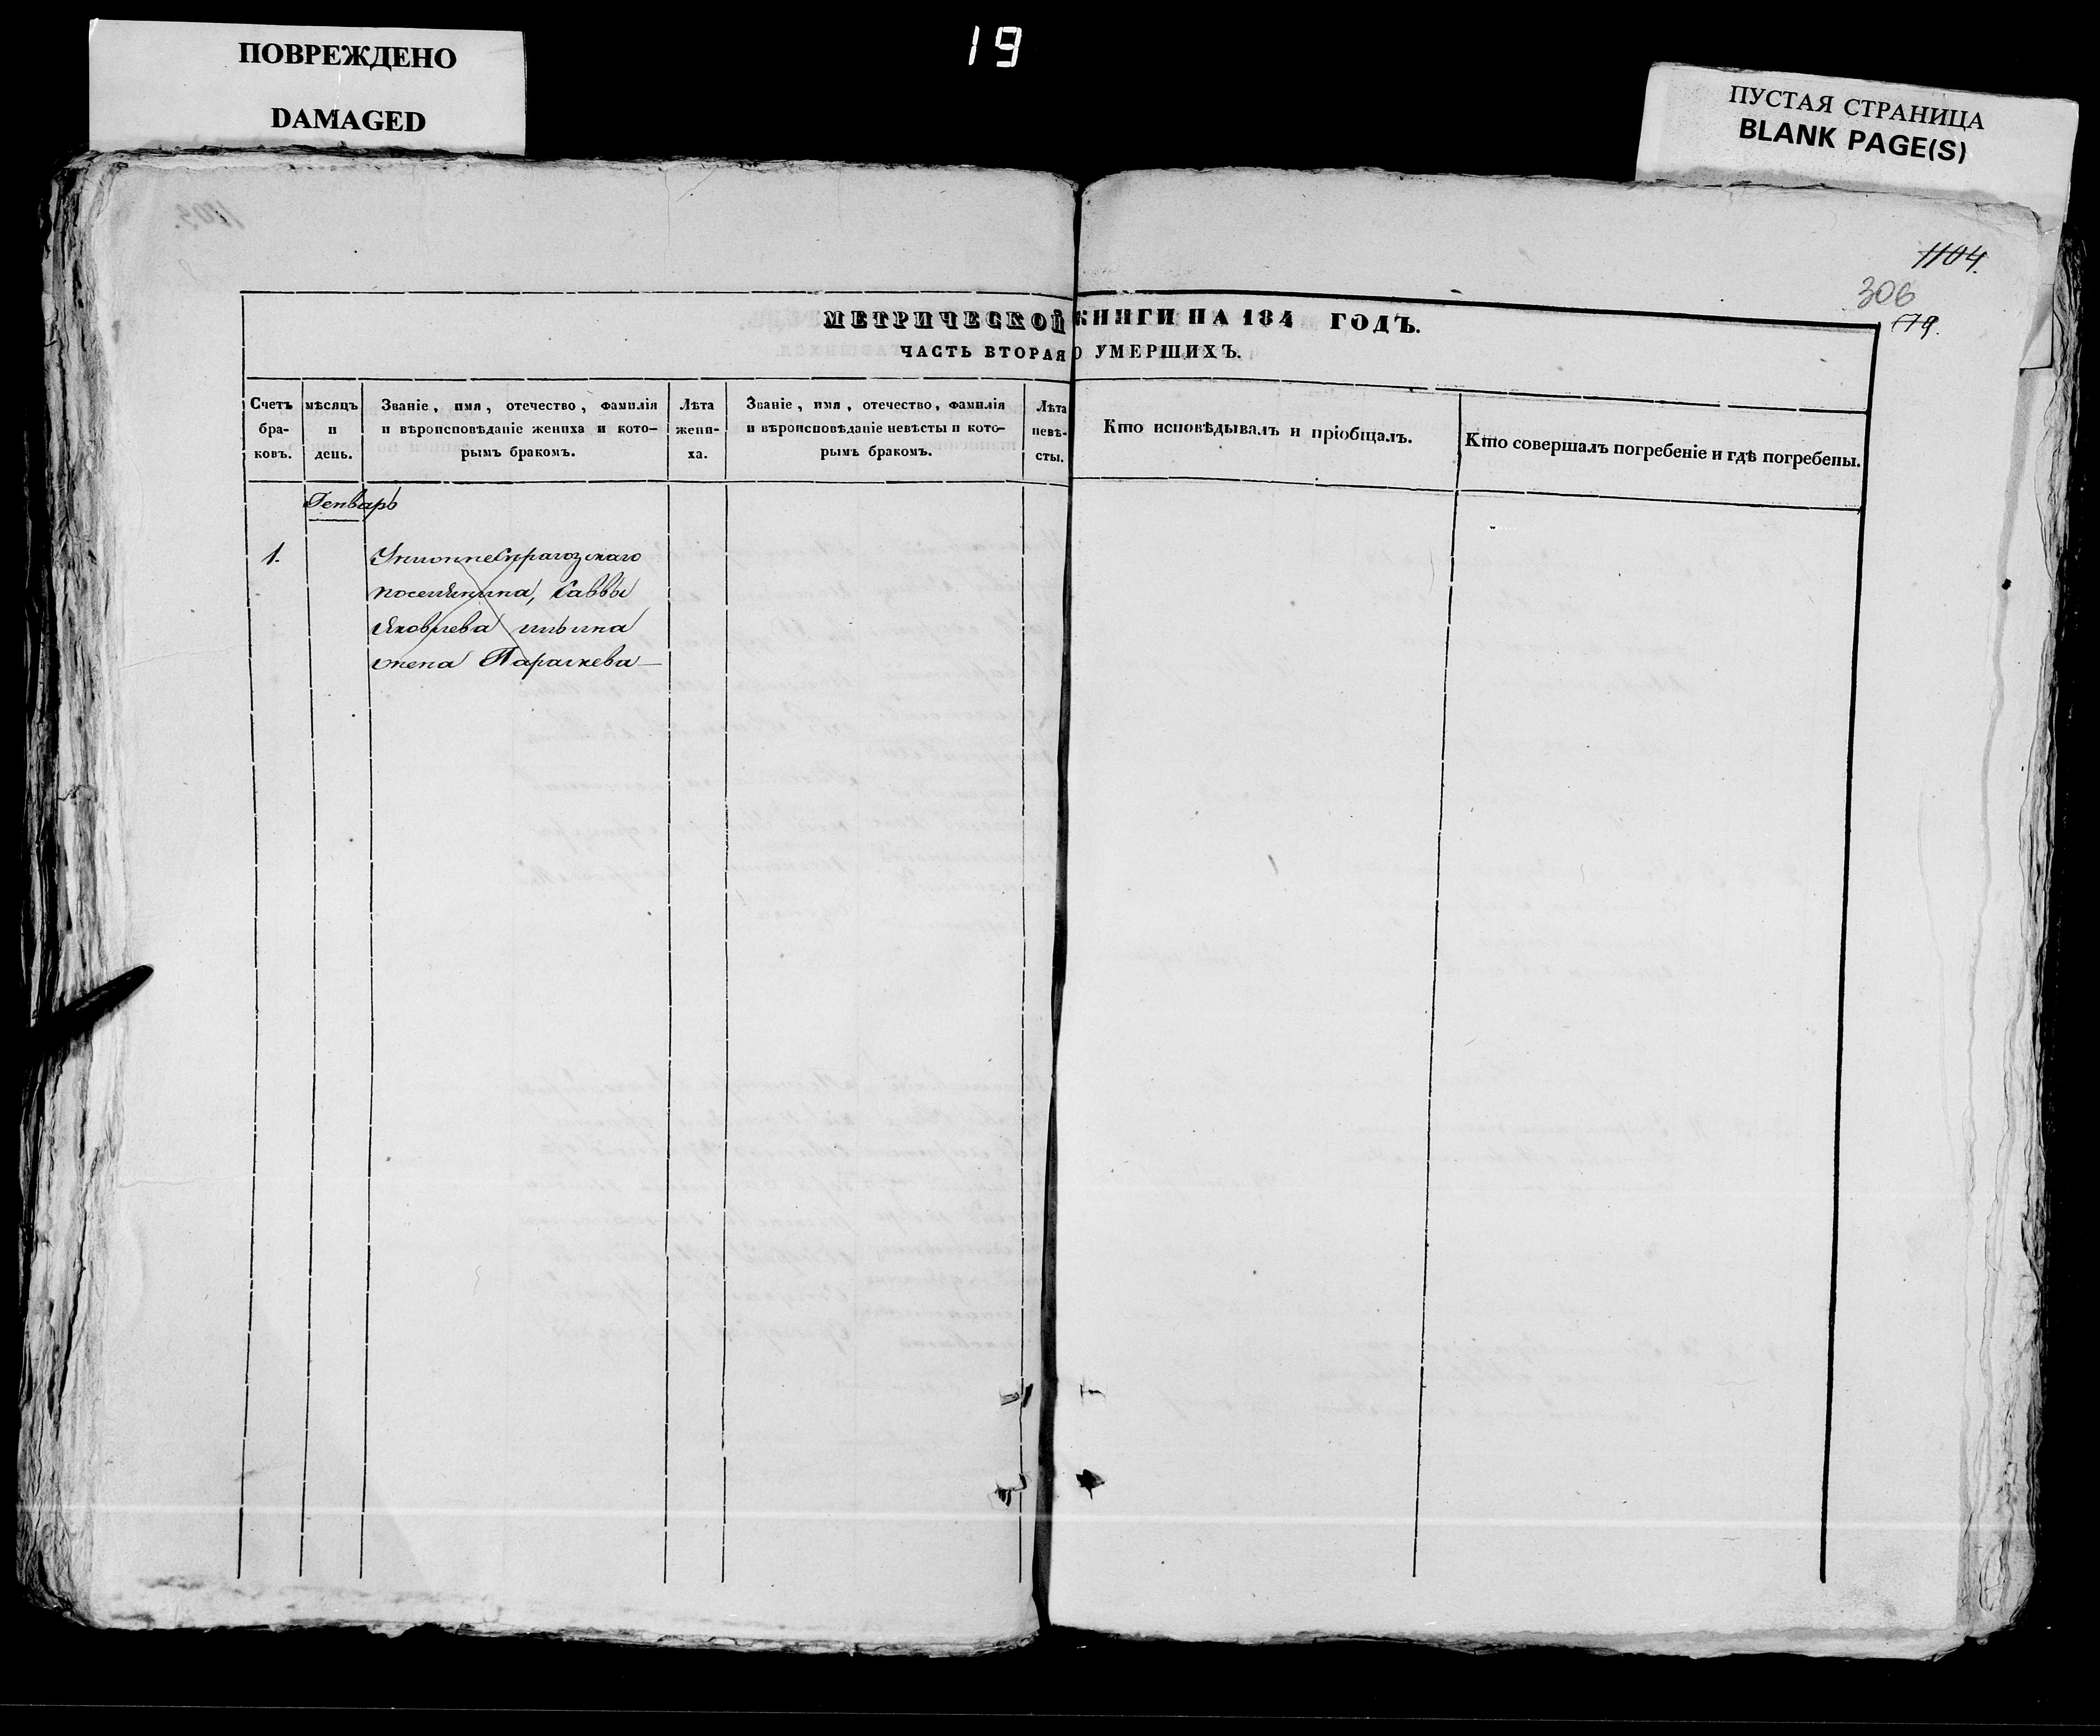 ПОВРЕЖДЕНО
DAMAGED
19
ПУСТАЯ СТРАНИЦА
BLANK PAGE(S)
1104.
306
179.
МЕТРИЧЕСКОЙ КНИГИ НА 184 ГОДЪ.
ЧАСТЬ ВТОРАЯ О УМЕРШИХЪ.
Счетъ
бра-
ковъ.
мѣсяцъ
и
день.
Званіе, имя, отечество, фамилія
и вѣроисповѣданіе жениха и кото-
рымъ бракомъ.
Лѣта
жени-
ха.
Званіе, имя, отечество, фамилія
и вѣроисповѣданіе невѣсты и кото-
рымъ бракомъ.
Лѣта
невѣ-
сты.
Кто исповѣдывалъ и пріобщалъ.
Кто совершалъ погребеніе и гдѣ погребены.
Генварь
1.
поселянина, Саввы
Яковлева
жена Параскева